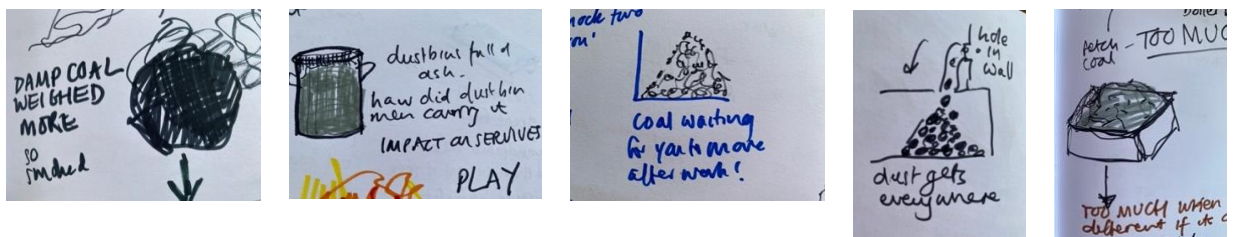 DAMP COAL
WEIGHED
MORE
so
smoked
dustbins full of
ash.
how did dustbin
men carry it
IMPACT ON SERVIVES
PLAY
mock two
Coal waiting
for you to move
after work!
hole
in
wall
dust gets
everywhere
fetch
coal
- TOO MUCH
TOO MUCH when
different if it